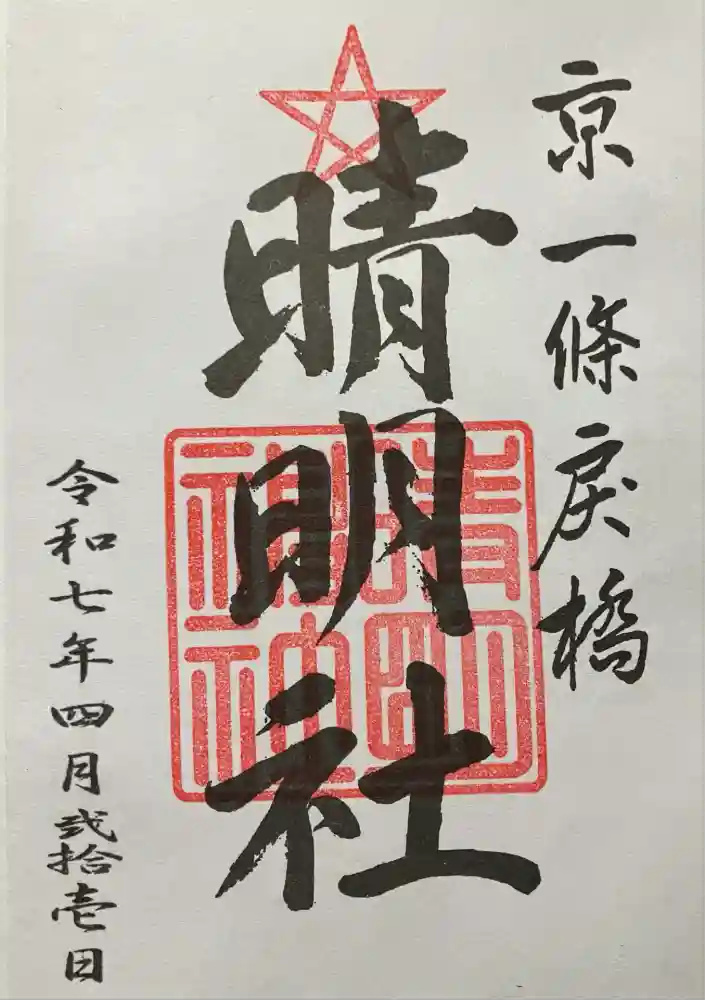 京一條戻橋
晴明社
晴明神社
令和七年四月弐拾壱日